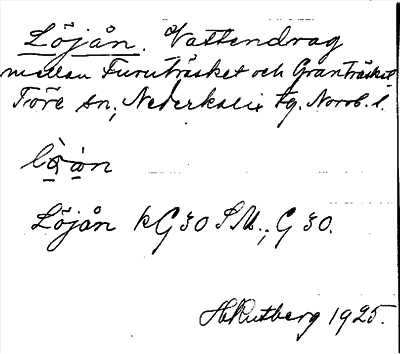 Löjån. Vattendrag
mellan Furuträsket och Granträsket
Töre sn., Nederkalix tg. Norrb. l.
Löjån kG30 S.M., G30.
H Rutberg 1925.